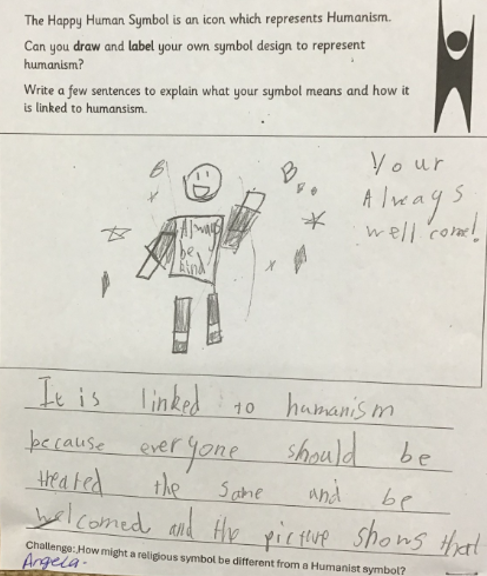 The Happy Human Symbol is an icon which represents Humanism.
Can you draw and label your own symbol design to represent
humanism?
Write a few sentences to explain what your symbol means and how it
is linked to humansism.
Your
Always
wellcome!
Always
be
kind
It is linked to humanism
because everyone should be
treated the same and be
welcomed and the picture shows that
Challenge: How might a religious symbol be different from a Humanist symbol?
Angela.